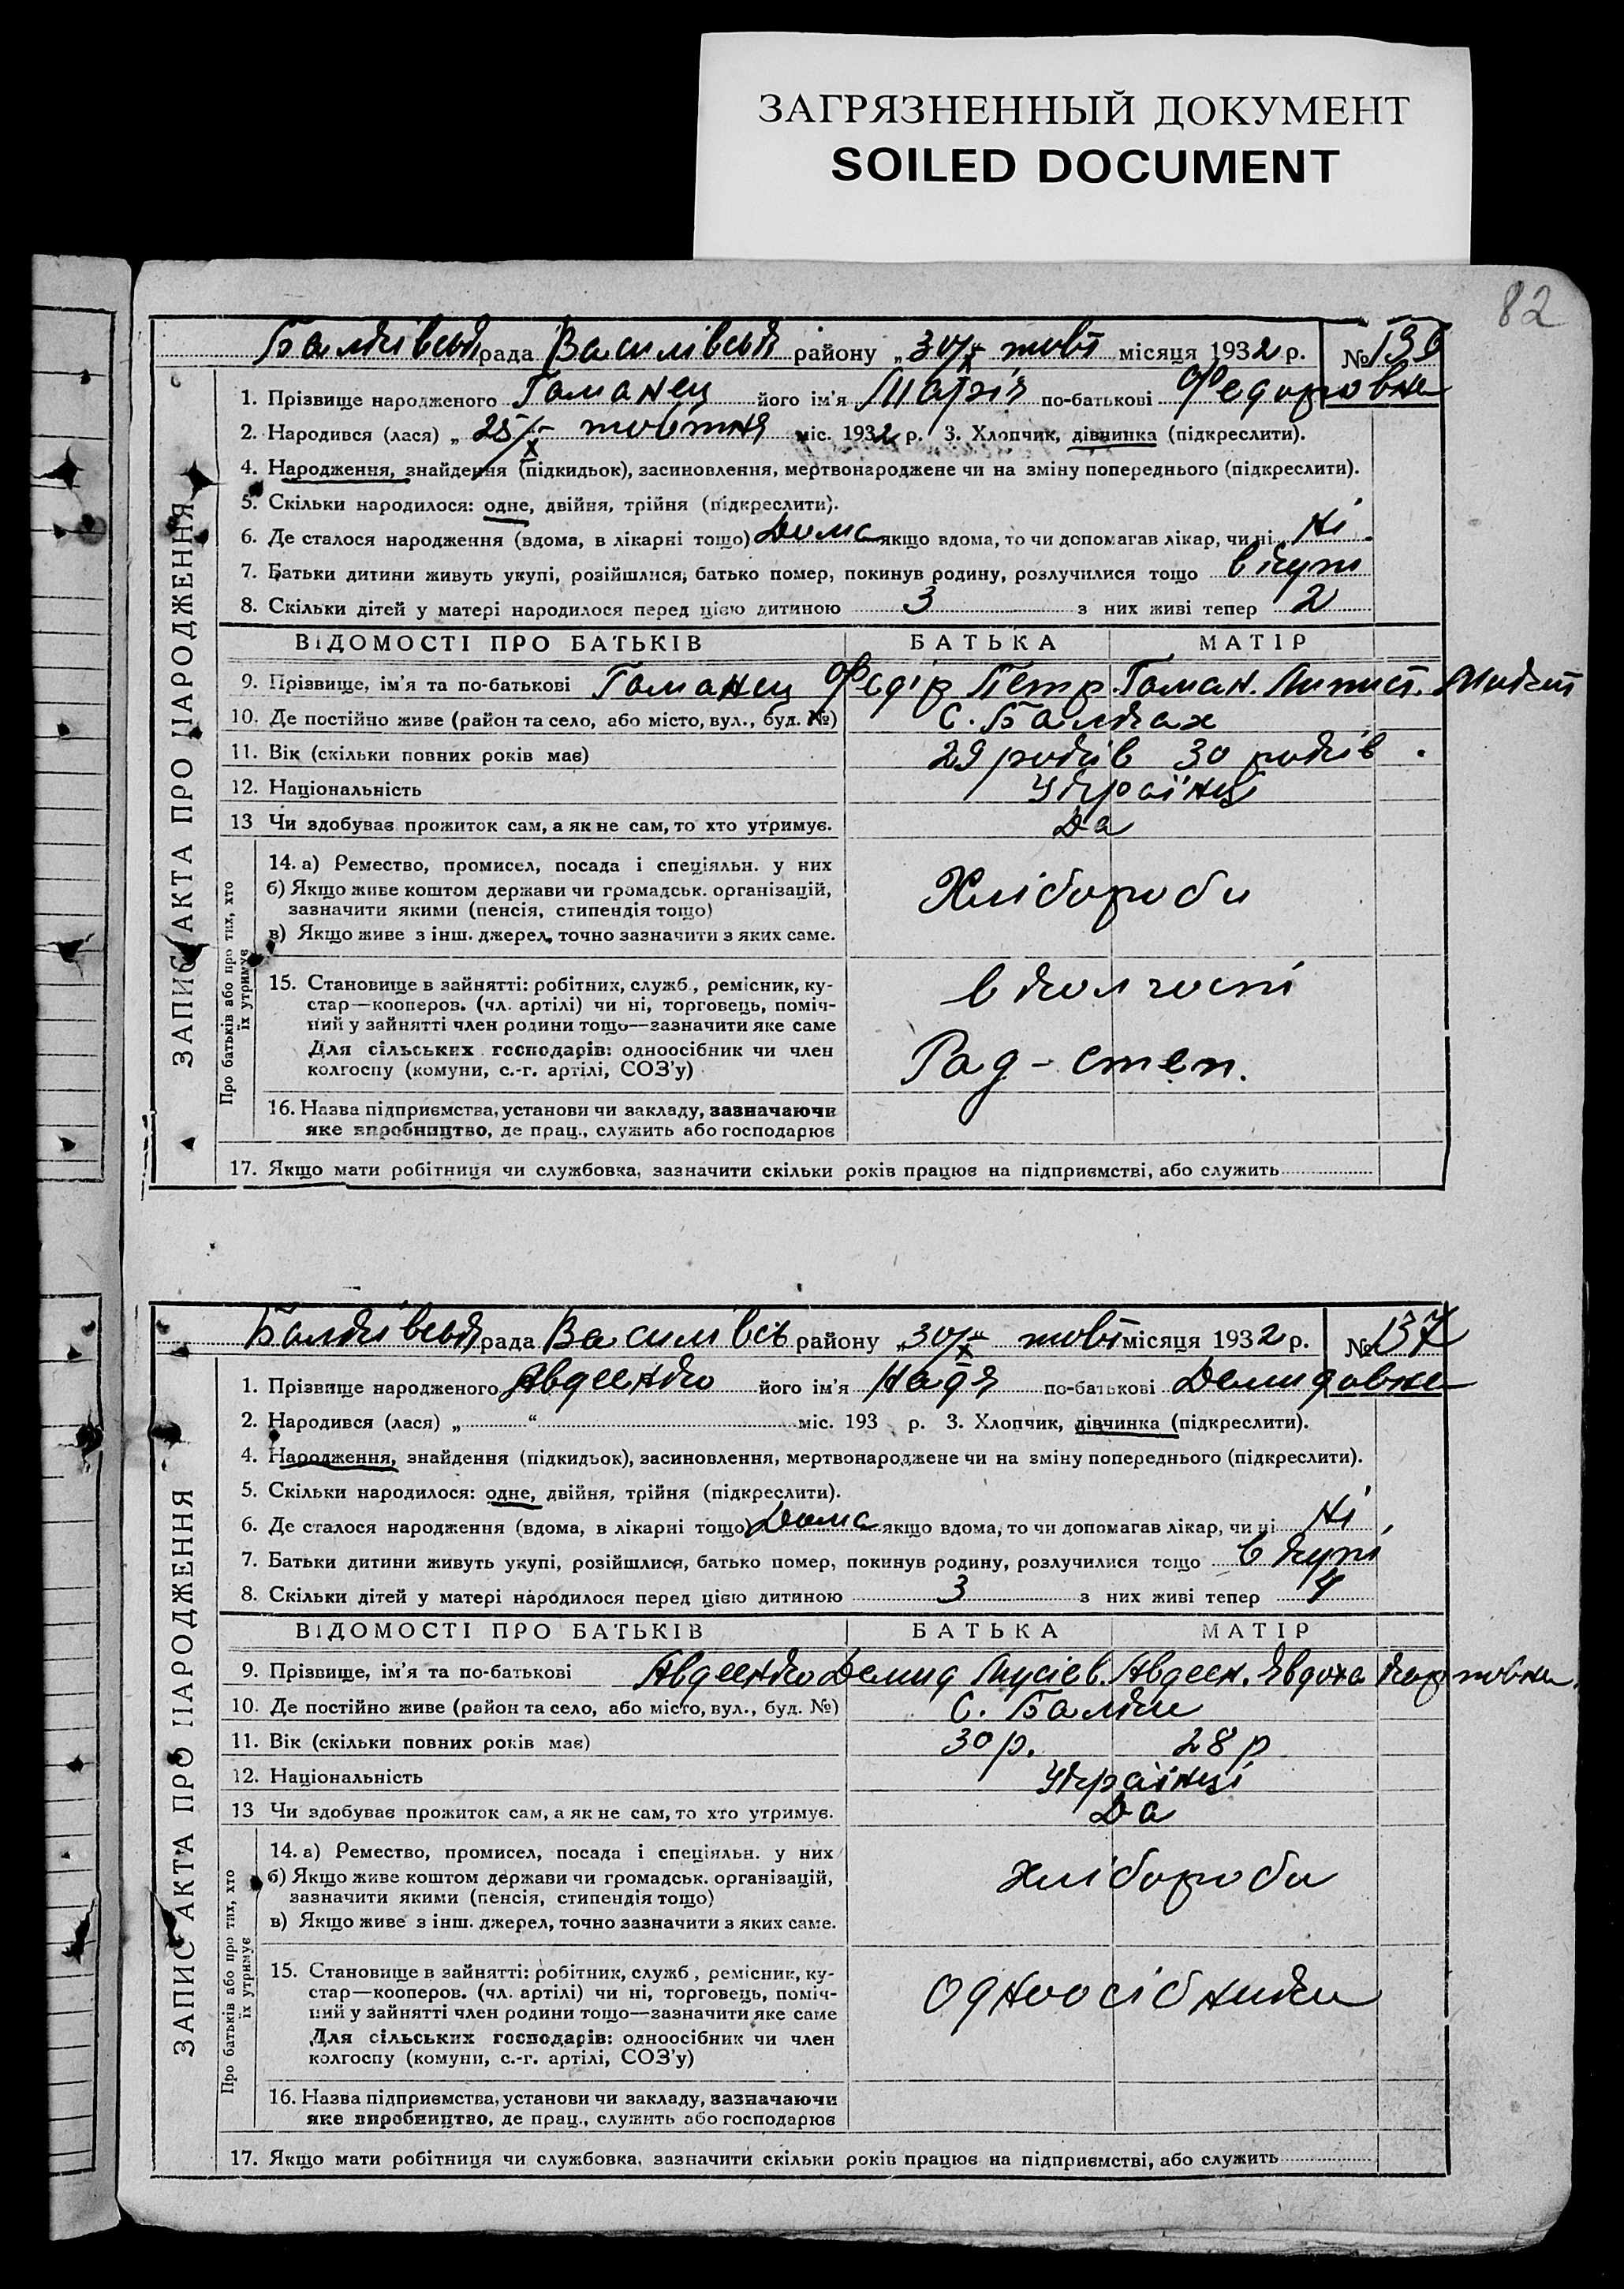 ЗАГРЯЗНЕННЫЙ ДОКУМЕНТ
SOILED DOCUMENT
82
ЗАПИС АКТА ПРО НАРОДЖЕННЯ
Балківська рада Василівськ району „30/X жовт місяця 1932 р. № 136
1. Прізвище народженого Гоманец його ім'я Марія по-батькові Федоровна
2. Народився (лася) „ 25/X жовтня міс. 1932 р. 3. Хлопчик, дівчинка (підкреслити).
4. Народження, знайдення (підкидьок), засиновлення, мертвонароджене чи на зміну попереднього (підкреслити).
5. Скільки народилося: одне, двійня, трійня (підкреслити).
6. Де сталося народження (вдома, в лікарні тощо) Дома якщо вдома, то чи допомагав лікар, чи ні Ні
7. Батьки дитини живуть укупі, розійшлися, батько помер, покинув родину, розлучилися тощо вкупі
8. Скільки дітей у матері народилося перед цією дитиною 3 з них живі тепер 2
ВІДОМОСТІ ПРО БАТЬКІВ БАТЬКА МАТІР
9. Прізвище, ім'я та по-батькові Гоманец Федір Петр. Гоман.
10. Де постійно живе (район та село, або місто, вул., буд. №) С. Балках
11. Вік (скільки повних років має) 29 років 30 років
12. Національність Українці
13 Чи здобував прожиток сам, а як не сам, то хто утримує. Да
Про батьків або про тих, хто їх утримує
14. а) Ремество, промисел, посада і спеціяльн. у них
б) Якщо живе коштом держави чи громадськ. організацій,
зазначити якими (пенсія, стипендія тощо)
в) Якщо живе з інш. джерел, точно зазначити з яких саме.
Хлібороби
15. Становище в зайнятті: робітник, служб., ремісник, ку-
стар—кооперов. (чл. артілі) чи ні, торговець, поміч-
ний у зайнятті член родини тощо—зазначити яке саме
Для сільських господарів: одноосібник чи член
колгоспу (комуни, с.-г. артілі, СОЗ'у)
в колгоспі
Рад-степ.
16. Назва підприємства, установи чи закладу, зазначаючи
яке виробництво, де прац., служить або господарює
17. Якщо мати робітниця чи службовка, зазначити скільки років працює на підприємстві, або служить
ЗАПИС АКТА ПРО НАРОДЖЕННЯ
Балківська рада Василівсь району „30/X“ жовт місяця 1932 р. № 137
1. Прізвище народженого Авдеенко його ім'я Надя по-батькові Демидовна
2. Народився (лася) „ “ міс. 193 р. 3. Хлопчик, дівчинка (підкреслити).
4. Народження, знайдення (підкидьок), засиновлення, мертвонароджене чи на зміну попереднього (підкреслити).
5. Скільки народилося: одне, двійня, трійня (підкреслити).
6. Де сталося народження (вдома, в лікарні тощо) Дома якщо вдома, то чи допомагав лікар, чи ні Ні
7. Батьки дитини живуть укупі, розійшлися, батько помер, покинув родину, розлучилися тощо вкупі
8. Скільки дітей у матері народилося перед цією дитиною 3 з них живі тепер 4
ВІДОМОСТІ ПРО БАТЬКІВ БАТЬКА МАТІР
9. Прізвище, ім'я та по-батькові Авдеенко Демид Мусіев. Авдеен. Явдоха
10. Де постійно живе (район та село, або місто, вул., буд. №) С. Балки
11. Вік (скільки повних років має) 30 р. 28 р
12. Національність Українці
13 Чи здобував прожиток сам, а як не сам, то хто утримує. Да
Про батьків або про тих, хто їх утримує
14. а) Ремество, промисел, посада і спеціяльн. у них
б) Якщо живе коштом держави чи громадськ. організацій,
зазначити якими (пенсія, стипендія тощо)
в) Якщо живе з інш. джерел, точно зазначити з яких саме.
хлібороби
15. Становище в зайнятті: робітник, служб., ремісник, ку-
стар—кооперов. (чл. артілі) чи ні, торговець, поміч-
ний у зайнятті член родини тощо—зазначити яке саме
Для сільських господарів: одноосібник чи член
колгоспу (комуни, с.-г. артілі, СОЗ'у)
одноосібники
16. Назва підприємства, установи чи закладу, зазначаючи
яке виробництво, де прац., служить або господарює
17. Якщо мати робітниця чи службовка, зазначити скільки років працює на підприємстві, або служить